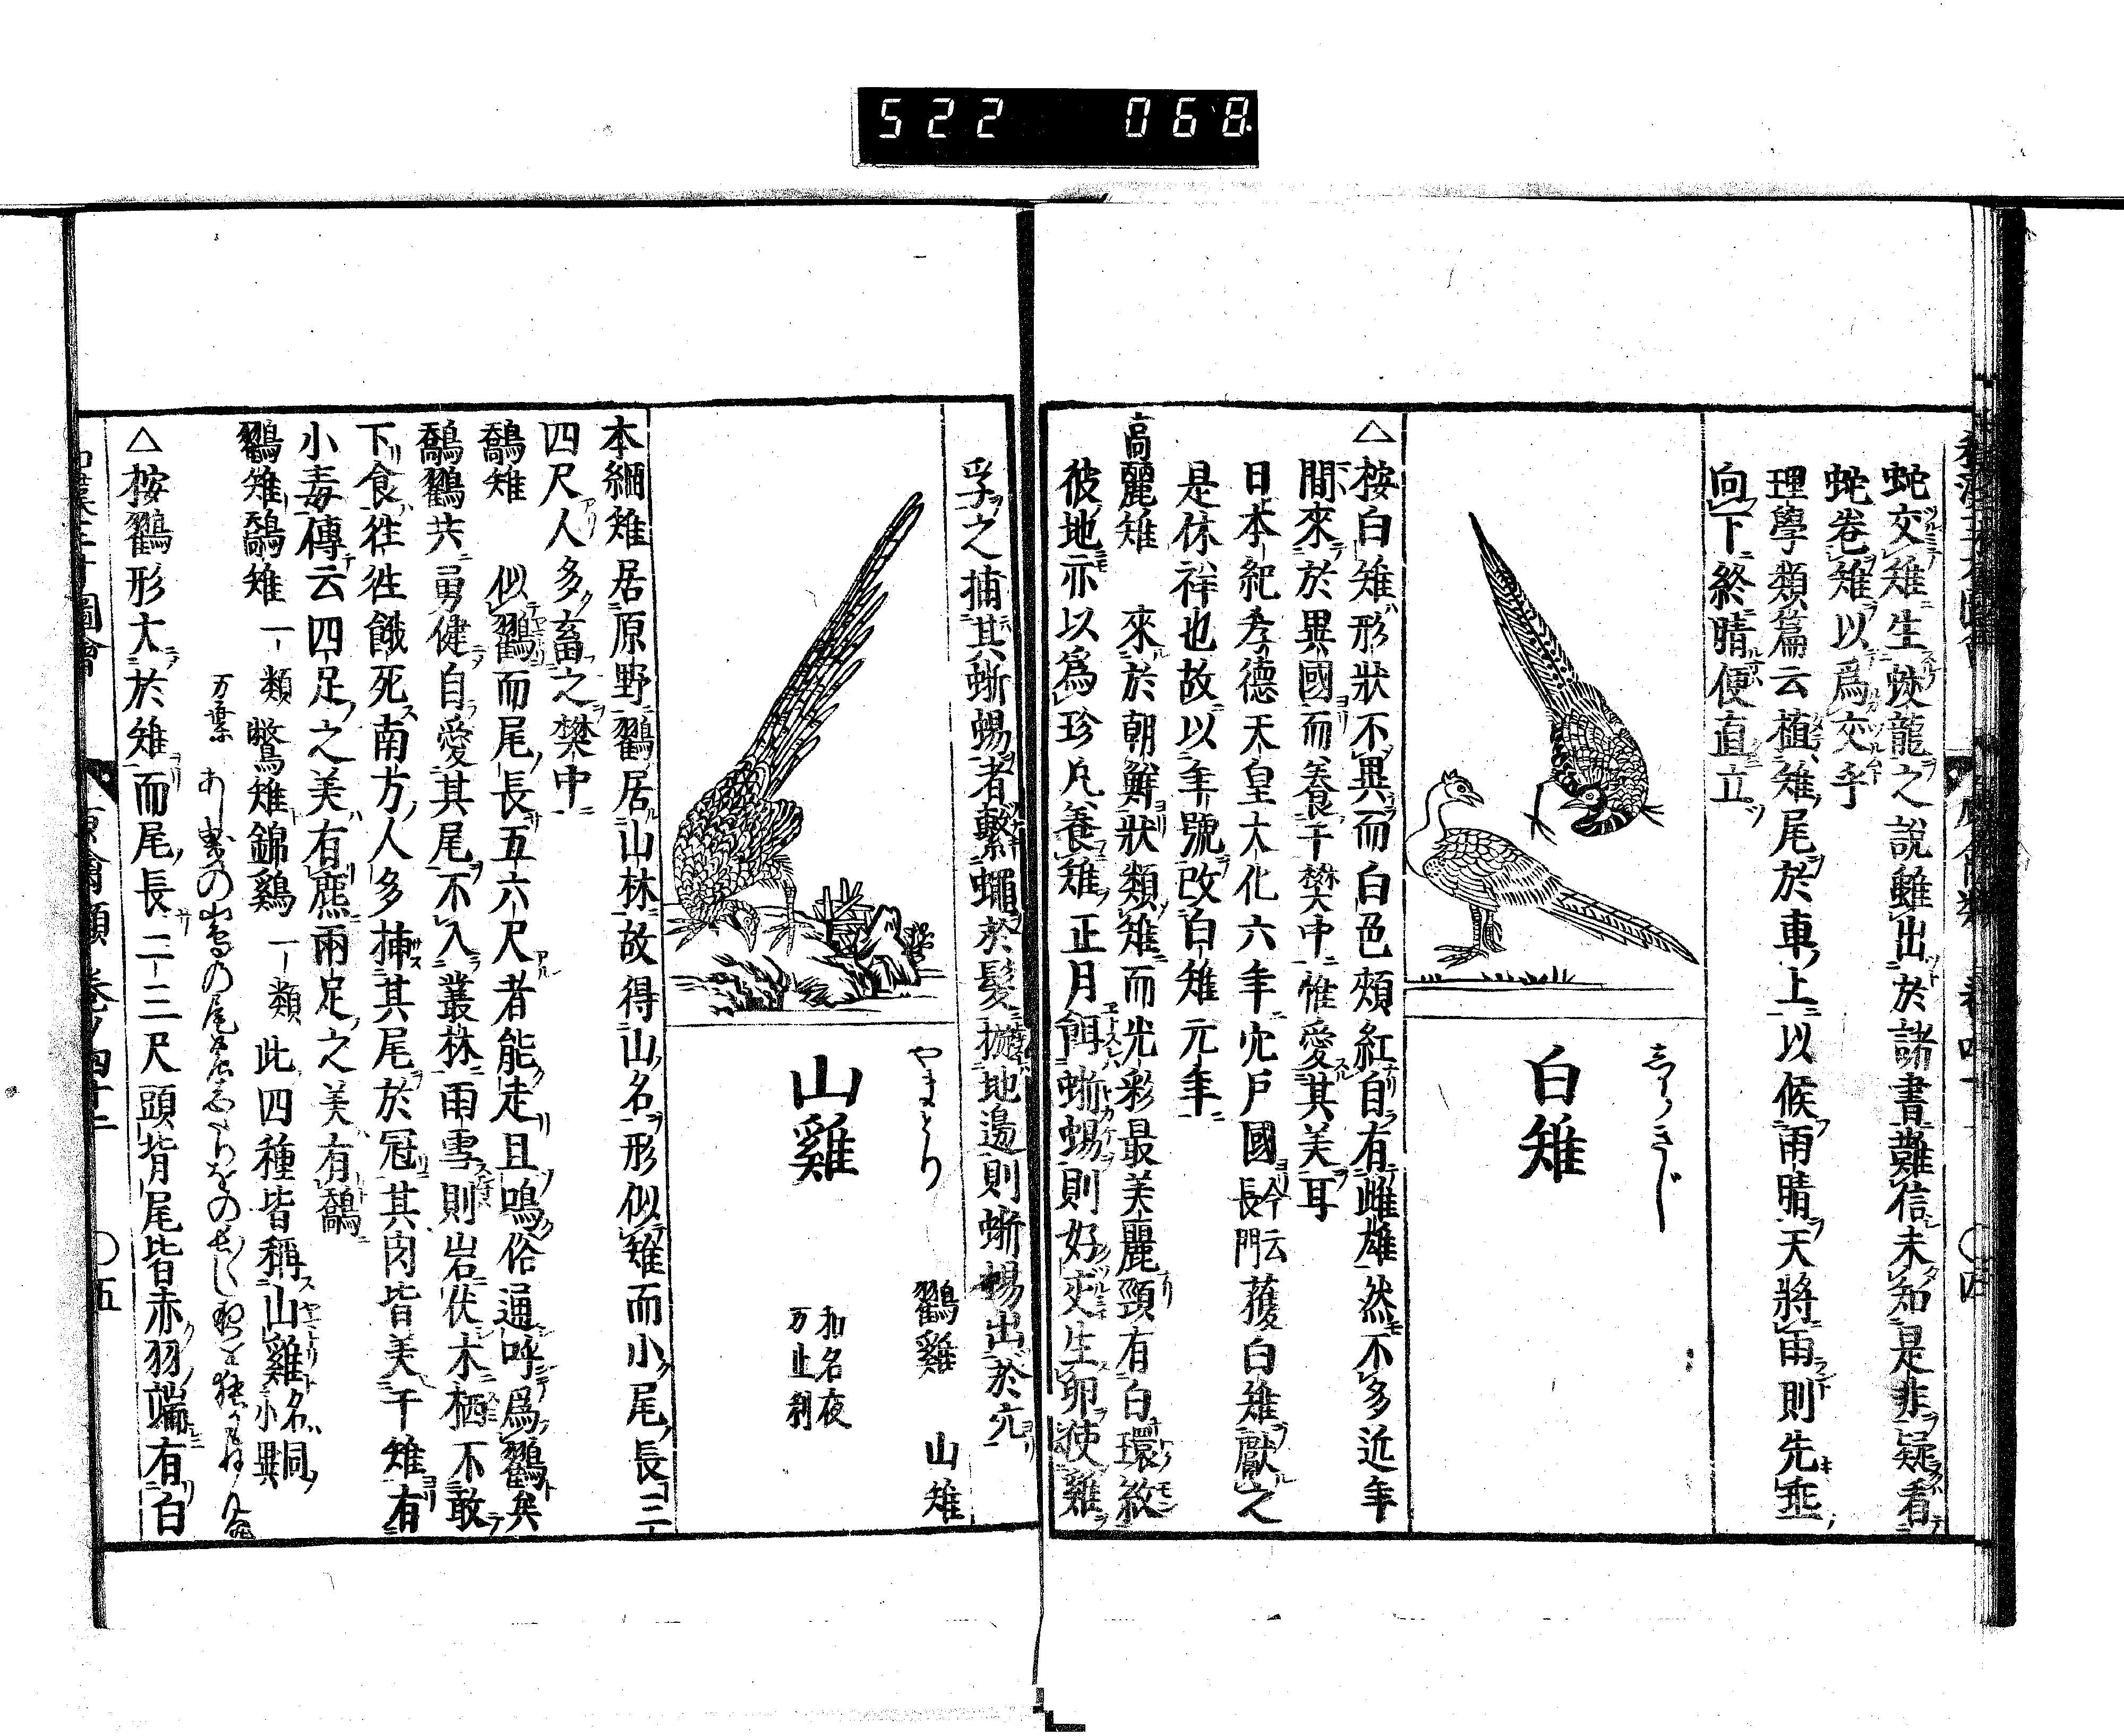 522 068
蛇交雉生蛟龍之說雖出於諸書難信未知是非疑看
蛇卷雉以爲交乎
理學類篇云植雉尾於車上以候雨晴天將雨則先垂
向下終晴便直立
しろきじ
白雉
△按白雉形狀不異而白色頰紅自有雌雄然不多近年
間來於異國而養于樊中惟愛其美耳
日本紀孝德天皇大化六年穴戶國今云長門獲白雉獻之
是休祥也故以年號改白雉元年
高麗雉 來於朝鮮狀類雉而光彩最美麗頸有白環紋
彼地亦以爲珍凡養雉正月餌蜥蜴則好交生卵使雞
孚之捕其蜥蜴者繫蠅於髮 地邊則蜥蜴出於穴
やまどり
山雞
鸐雞 山雉
和名夜
万止利
本綱雉居原野鸐居山林故得山名形似雉而小尾長三
四尺人多畜之樊中
鷮雉 似鸐而尾長五六尺者能走且鳴俗通呼爲鸐矣
鷮鸐共勇健自愛其尾不入叢林雨雪則岩伏木栖不敢
下食往往餓死南方人多捕其尾於冠其肉皆美于雉有
小毒傳云四足之美有麃兩足之美有鷮
鸐雉鷮雉一類鷩雉錦雞一類此四種皆稱山雞名同小異
万葉 あし曳の山鳥の尾の
△按鸐形大於雉而尾長二三尺頭背尾皆赤羽端有白
原禽類 卷ノ四十二 〇五